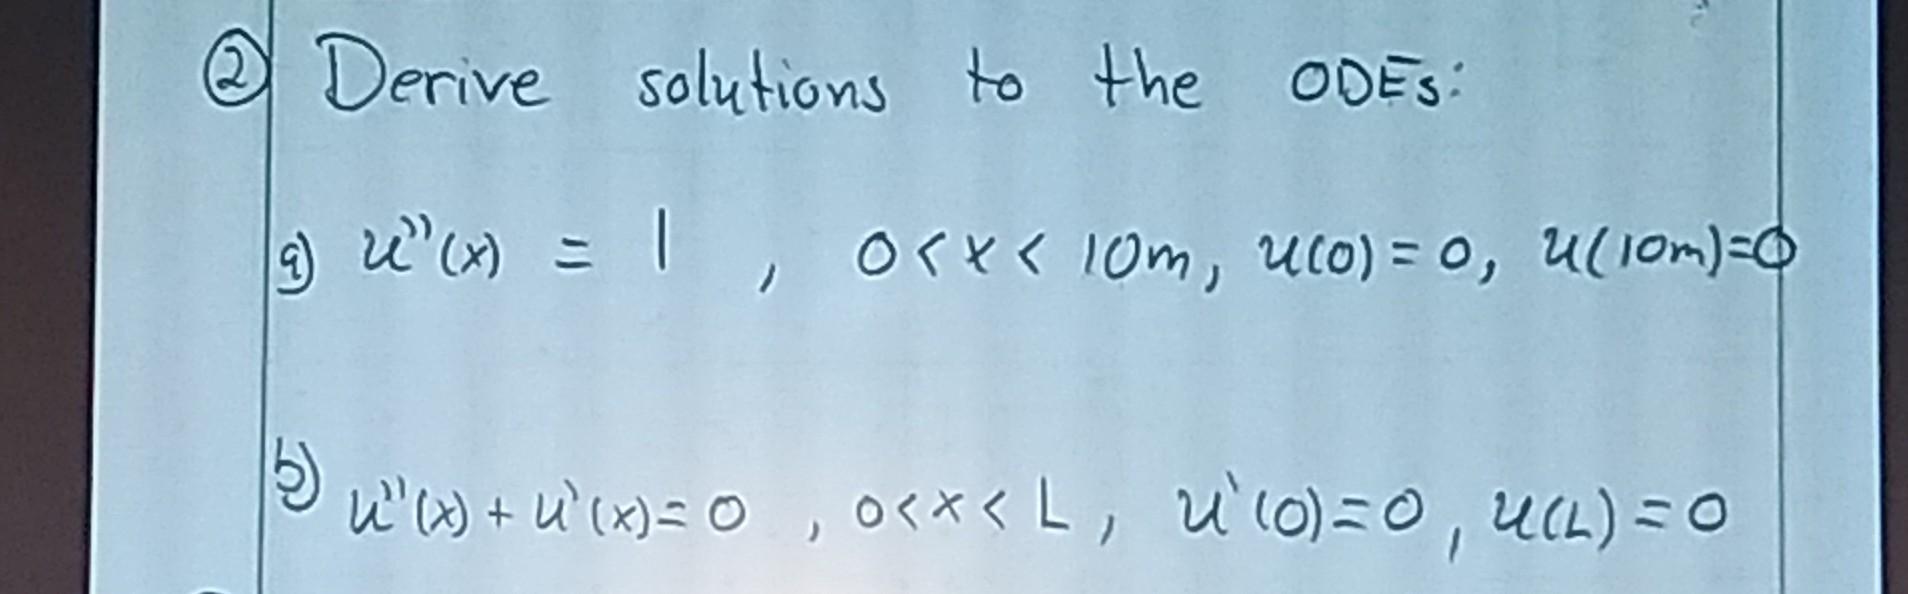 ② Derive solutions to the ODEs:
a) u''(x) = 1 , 0 < x < 10m, u(0) = 0, u(10m)=0
b) u''(x) + u'(x) = 0 , 0 < x < L, u'(0) = 0, u(L) = 0